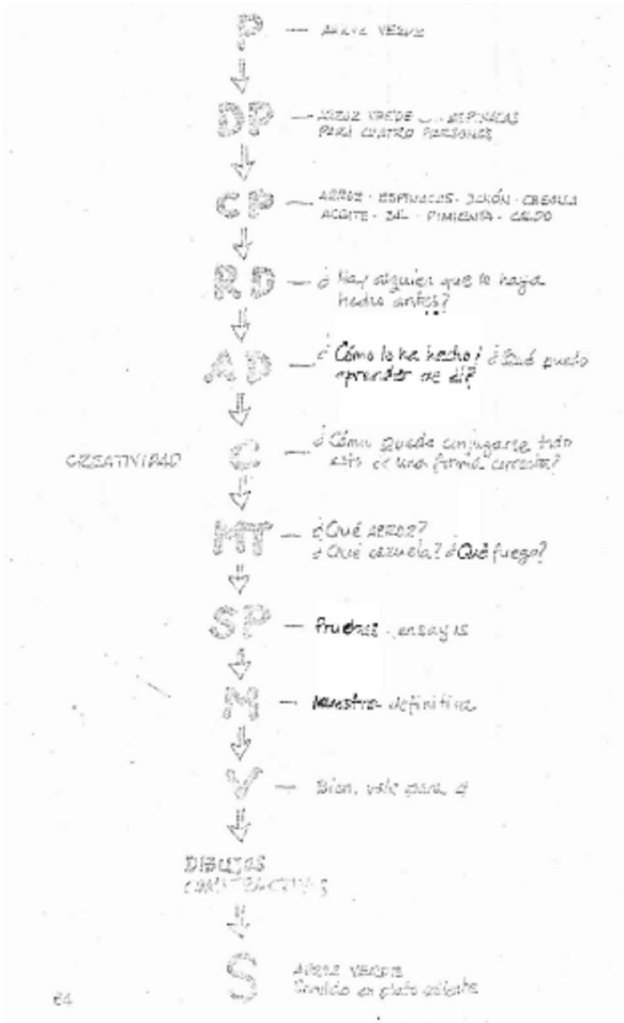 P — ARROZ VERDE
DP — ARROZ VERDE ... ESPINACAS
PARA CUATRO PERSONAS
CP — ARROZ - ESPINACAS - JAMÓN - CEBOLLA
ACEITE - SAL - PIMIENTA - CALDO
RD — ¿Hay alguien que lo haya
hecho antes?
AD — ¿Cómo lo ha hecho? ¿Qué puedo
aprender de él?
CREATIVIDAD C — ¿Cómo puede conjugarse todo
esto de una forma correcta?
MT — ¿Qué ARROZ?
¿Qué cazuela? ¿Qué fuego?
SP — Pruebas - ensayos
M — Muestra definitiva
V — Bien, vale para 4
DIBUJOS
CONSTRUCTIVOS
S ARROZ VERDE
Servido en plato caliente
64